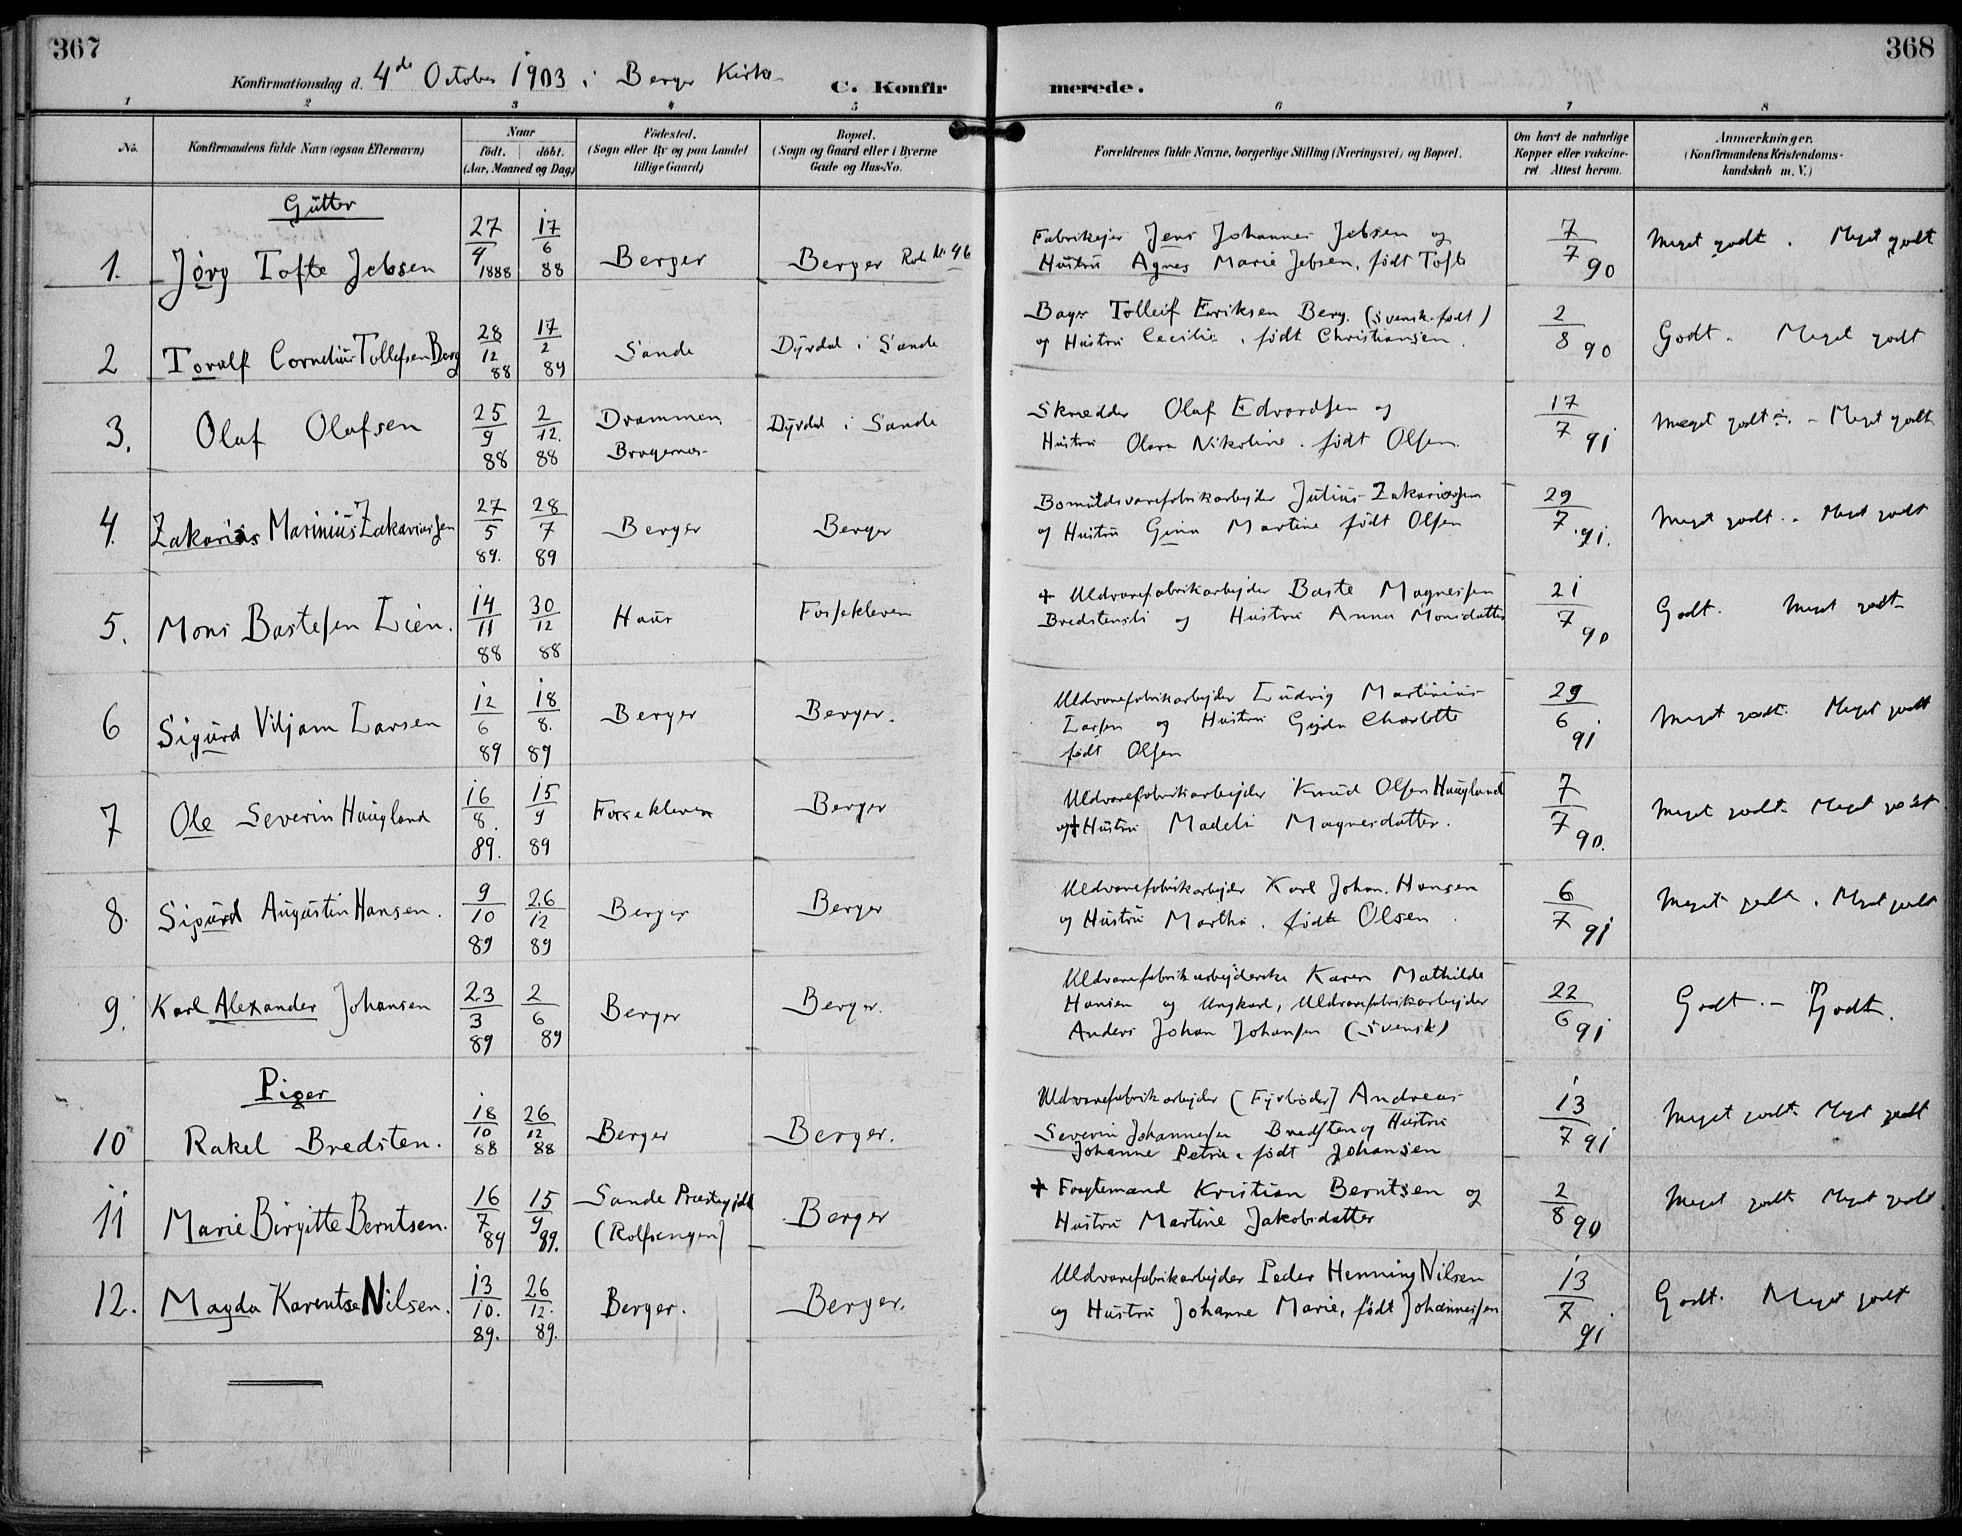 367
368
Konfirmationsdag d. 4de October 1903 i Berger Kirke
C. Konfir merede.
1 2 3 4 5 6 7 8
No.
Konfirmandens fulde Navn (ogsaa Efternavn)
Naar
født. døbt.
(Aar, Maaned og Dag)
Fødested.
(Sogn eller By og paa Landet
tillige Gaard)
Bopæl.
(Sogn og Gaard eller i Byerne
Gade og Hus-No.
Forældrenes fulde Navne, borgerlige Stilling (Næringsvei) og Bopæl.
Om havt de naturlige
Kopper eller vakcine-
ret Attest herom.
Anmærkninger.
(Konfirmandens Kristendoms-
kundskab m. V.)
Gutter
1. Jørg Tofte Jebsen 27/4 1888 17/6 88 Berger Berger
Fabrikejer Jens Johannes Jebsen og
Hustru Agnes Marie Jebsen, født Tofte
7/7 90 Meget godt. Meget godt
2 Toralf Cornelius Tollefsen Berg 28/12 88 17/2 89 Sande Dyrdal i Sande
Bager Tolleif Eriksen Berg. (svensk født)
og Hustru Cecilie, født Christiansen.
2/8 90 Godt. Meget godt
3. Olaf Olafsen 25/9 88 2/12. 88 Drammen, Bragernes Dyrdal i Sande
Skrædder Olaf Edvardsen og
Hustru Olava Nikoline. født Olsen.
17/7 91 Meget godt ÷. - Meget godt
4. Zakarias Marinius Zakariassen 27/5 89. 28/7 89 Berger Berger
Bomuldsvarefabrikarbejder Julius Zakariassen
og Hustru Gina Martine født Olsen
29/7 91. Meget godt.. Meget godt
5. Mons Bastesen Lien. 14/11 88 30/12 88 Haus Fossekleven
+ Uldvarefabrikarbejder Baste Magnesen
Bredstensli og Hustru Anna Monsdatter
21/7 90 Godt. Meget godt
6 Sigurd Viljam Larsen 12/6 89 18/8. 89 Berger Berger.
Uldvarefabrikarbejder Ludvig Martinius
Larsen og Hustru Gyda Charlotte
født Olsen
29/6 91 Meget godt. Meget godt
7 Ole Severin Haugland 16/8. 89. 15/9 89 Fossekleven Berger
Uldvarefabrikarbejder Knud Olsen Haugland
og + Hustru Madeli Magnesdatter.
7/7 90. Meget godt. Meget godt
8. Sigurd Augustin Hansen. 9/10 89 26/12 89 Berger Berger
Uldvarefabrikarbejder Karl Johan. Hansen
og Hustru Martha. født Olsen
6/7 91 Meget godt. Meget godt
9. Karl Alexander Johansen 23/3 89 2/6 89 Berger Berger.
Uldvarefabrikarbejderske Karen Mathilde
Hansen og Ungkarl, Uldvarefabrikarbejder
Anders Johan Johansen (svensk)
22/6 91 Godt. - Godt.
Piger
10 Rakel Bredsten. 18/10 88 26/12 88 Berger Berger.
Uldvarefabrikarbejder (Fyrbøder) Andreas
Severin Johannessen Bredsten og Hustru
Johanne Petra. født Johansen
13/7 91 Meget godt. Meget godt
11 Marie Birgitte Berntsen. 16/7 89 15/9 89. Sande Præstegjeld (Rolfsengen) Berger
+ Fragtemand Kristian Berntsen og
Hustru Martine Jakobsdatter
2/8 90 Meget godt Meget godt
12. Magda Karentse Nilsen. 13/10. 89. 26/12. 89. Berger. Berger.
Uldvarefabrikarbejder Peder Henning Nilsen
og Hustru Johanne Marie, født Johannessen
13/7 91 Godt. Meget godt